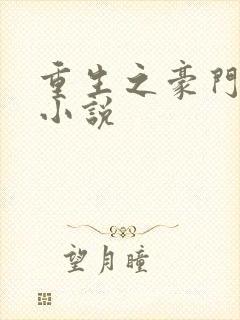 重生之豪門
小說
望月瞳